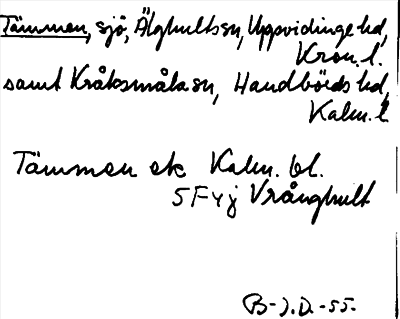 Tämmen, sjö, Älghults sn, Uppvidinge hd,
Kron. l.
samt Kråksmåla sn, Handbörds hd,
Kalm. l.
Tämmen ek Kalm. bl.
5F4j Vrånghult
B-J.D.-55.